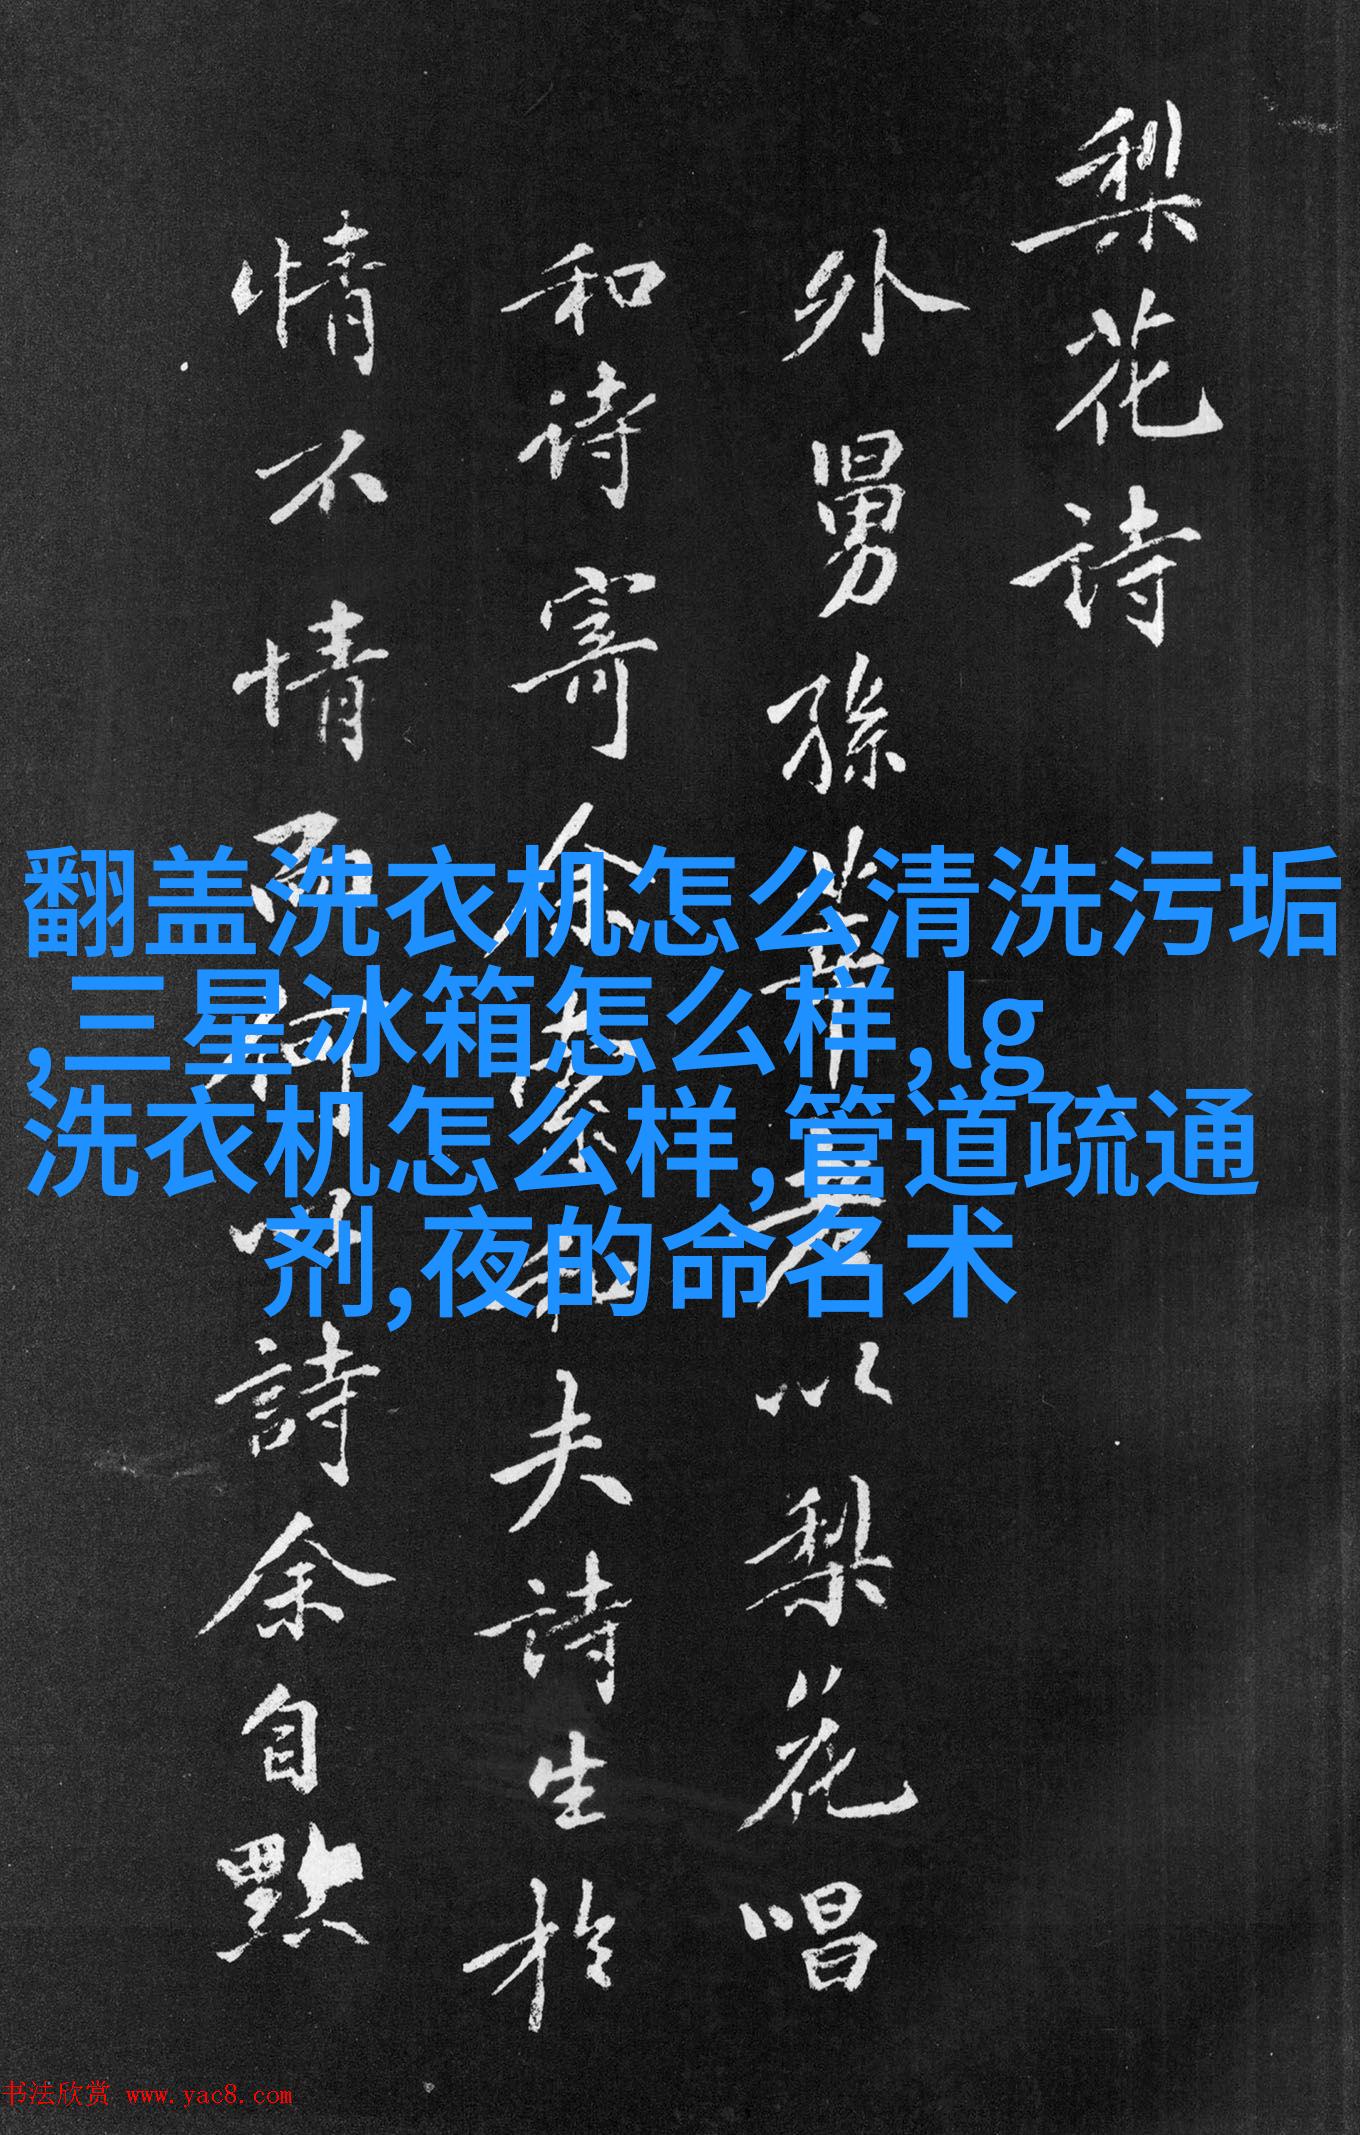 梨花詩
外舅孫莘老以梨花唱
和诗寄余余繁和夫诗生於
情不情而何以詩余自黙
翻盖洗衣机怎么清洗污垢
,三星冰箱怎么样,lg
洗衣机怎么样,管道疏通
剂,夜的命名术
书法欣赏 www.yac8.com